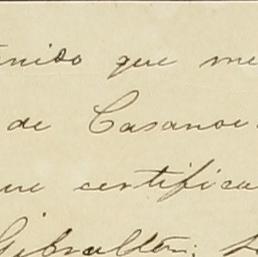 tenido que me
de Casanov
que certifica
Gibraltar;